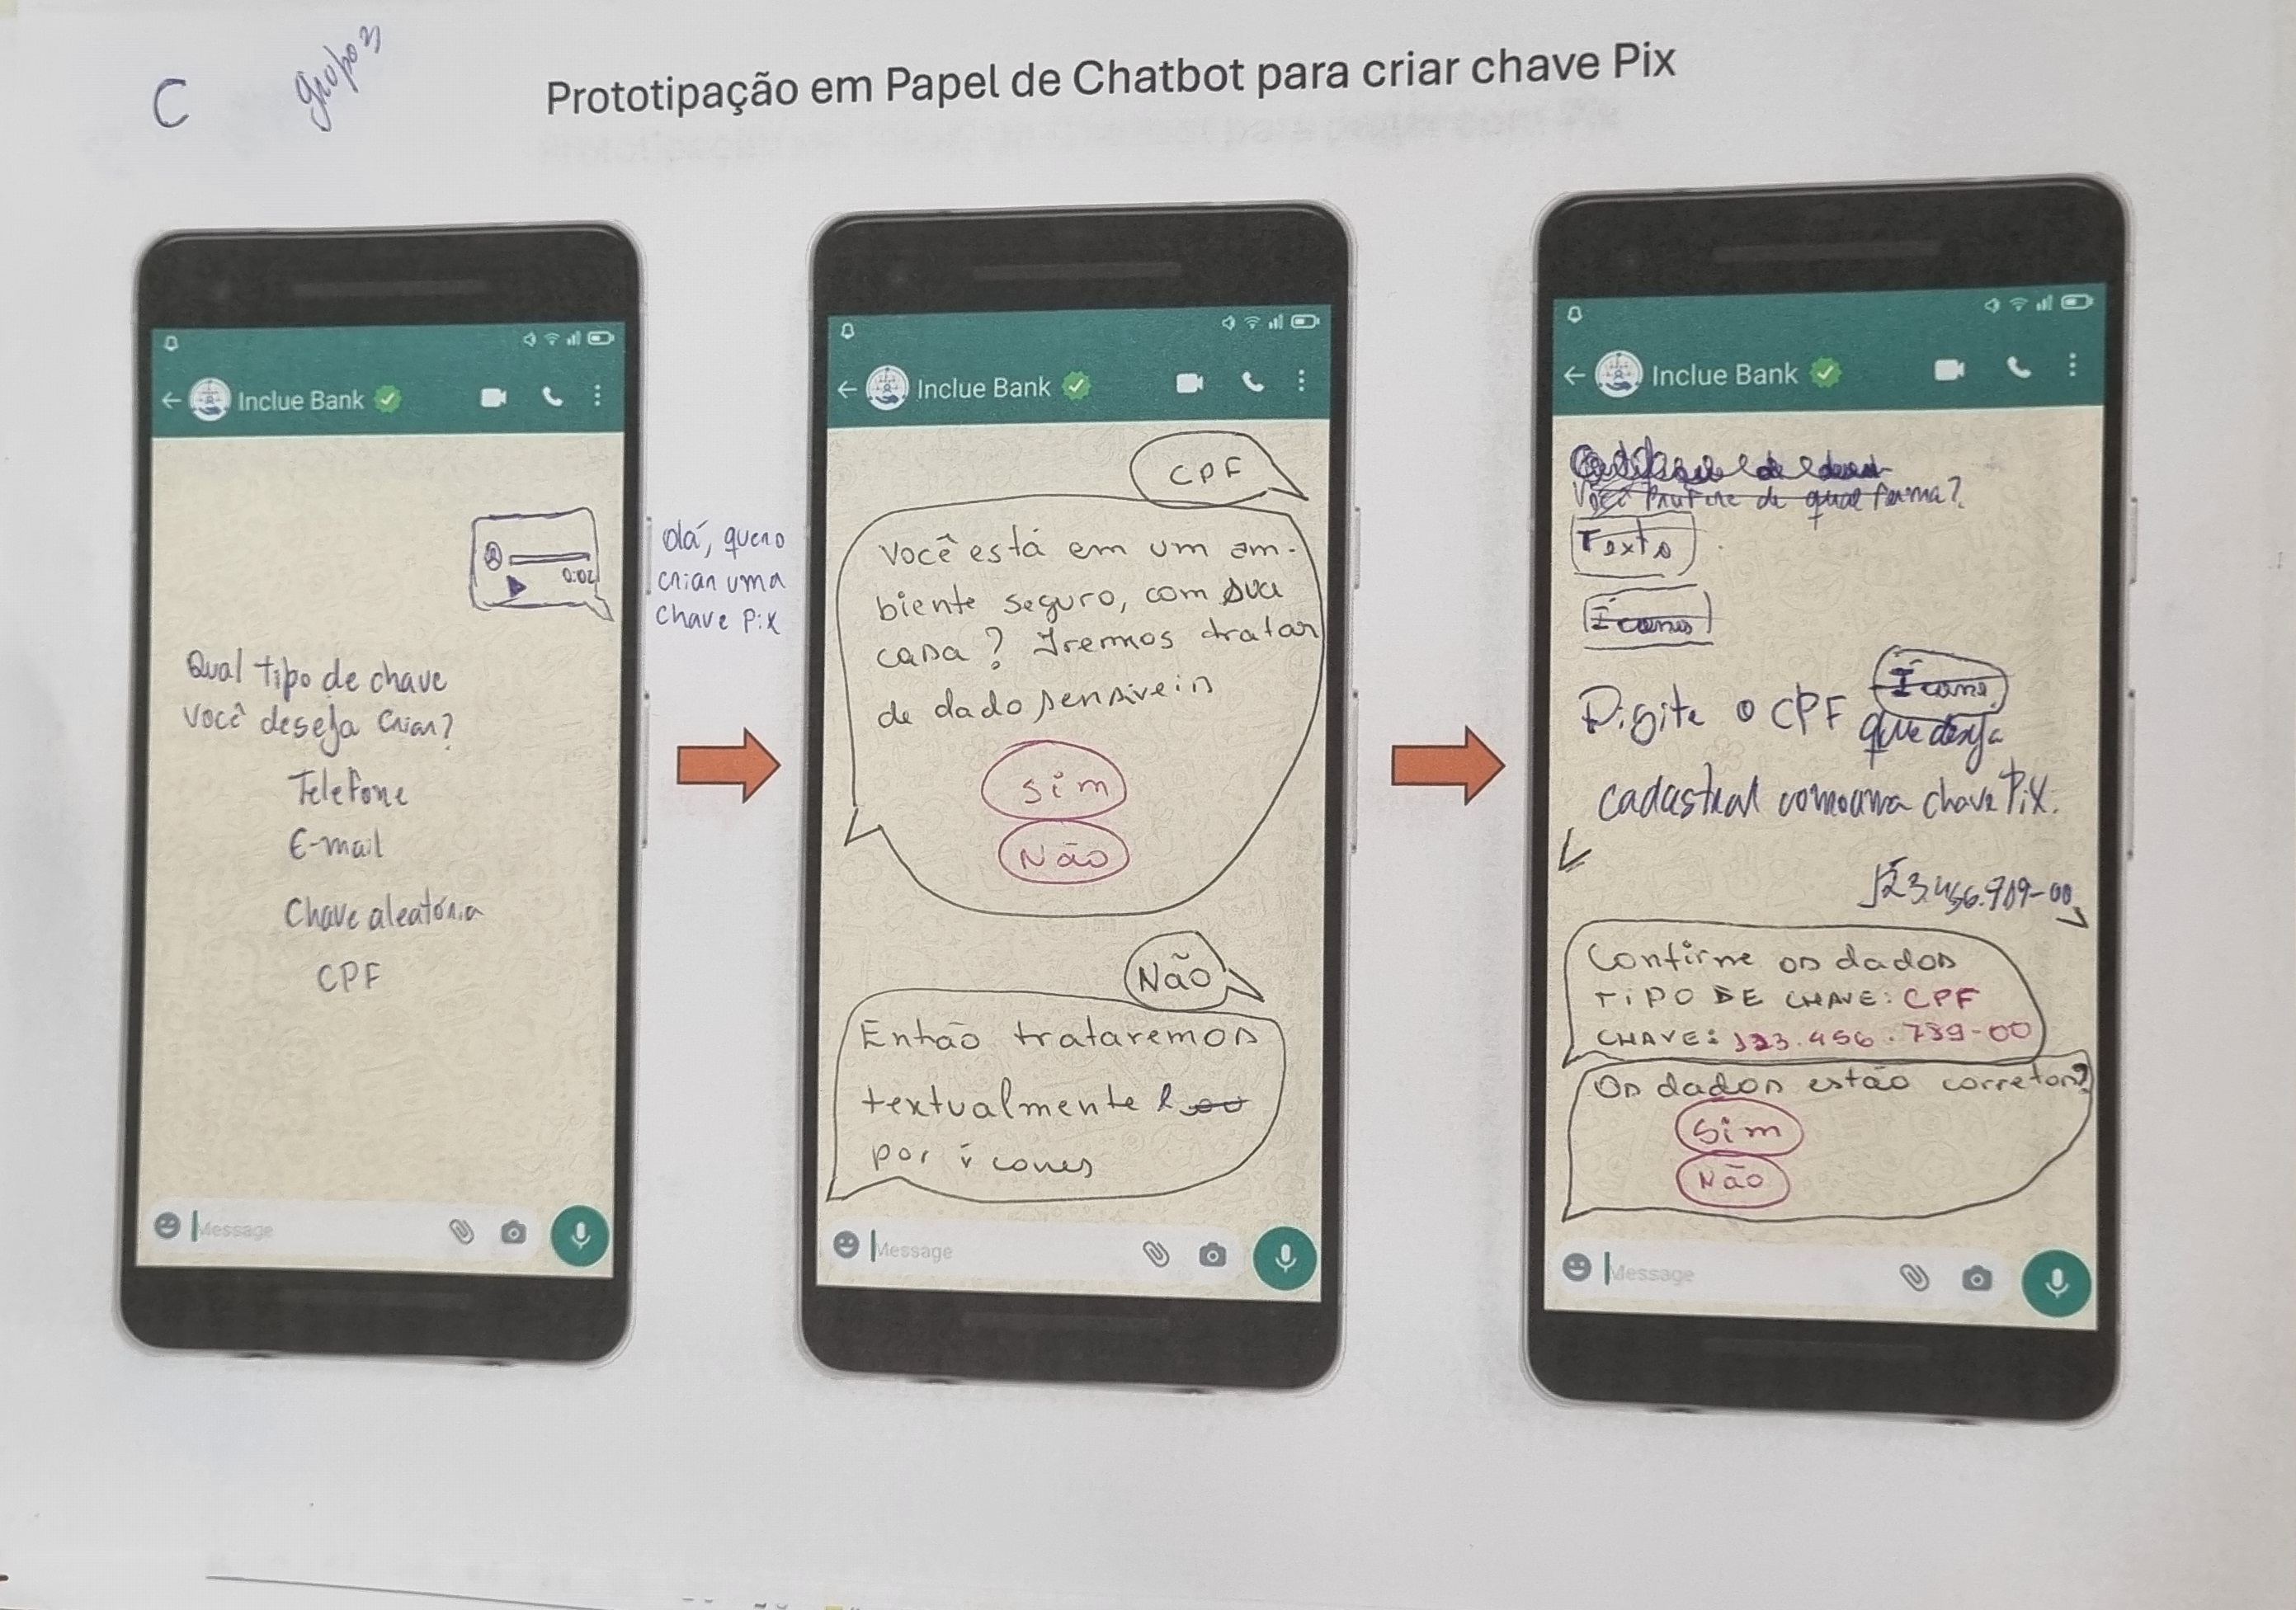 C
grupo 3
Prototipação em Papel de Chatbot para criar chave Pix
Inclue Bank
0:02
Olá, quero
criar uma
chave Pix
Qual tipo de chave
você deseja criar?
Telefone
E-mail
Chave aleatória
CPF
Message
Inclue Bank
CPF
Você está em um am-
biente seguro, com sua
casa? Iremos tratar
de dado sensíveis
Sim
Não
Não
Então trataremos
textualmente e ou
por ícones
Message
Inclue Bank
Você de qual forma?
Texto
Ícones
Digite o CPF
que deseja
cadastrar como uma chave Pix.
123.456.789-00
Confirme os dados
TIPO DE CHAVE: CPF
CHAVE: 123.456.789-00
Os dados estão corretos?
Sim
Não
Message